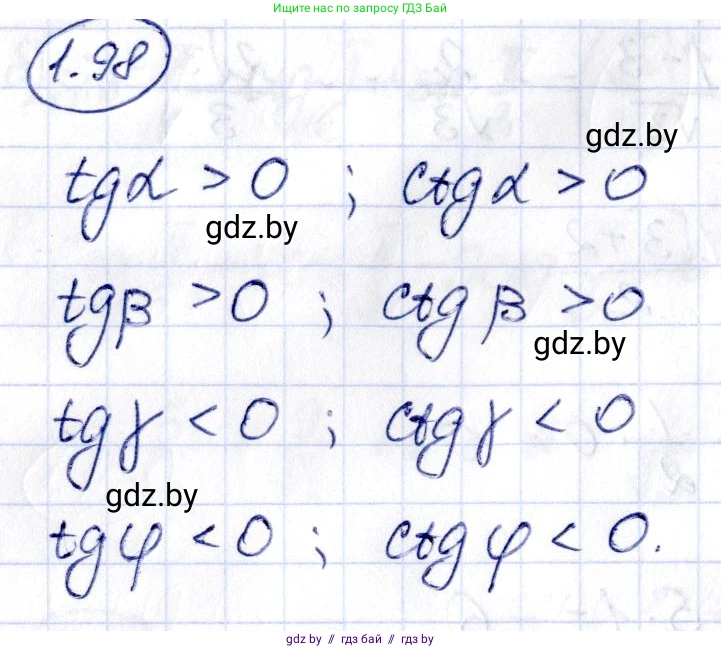 Ищите нас по запросу ГДЗ Бай
1.98
gdz.by
tgα > 0 ; ctgα > 0
gdz.by
tgβ > 0 ; ctgβ > 0
gdz.by
tgγ < 0 ; ctgγ < 0
gdz.by
tgφ < 0 ; ctgφ < 0.
gdz by // гдз бай // гдз by